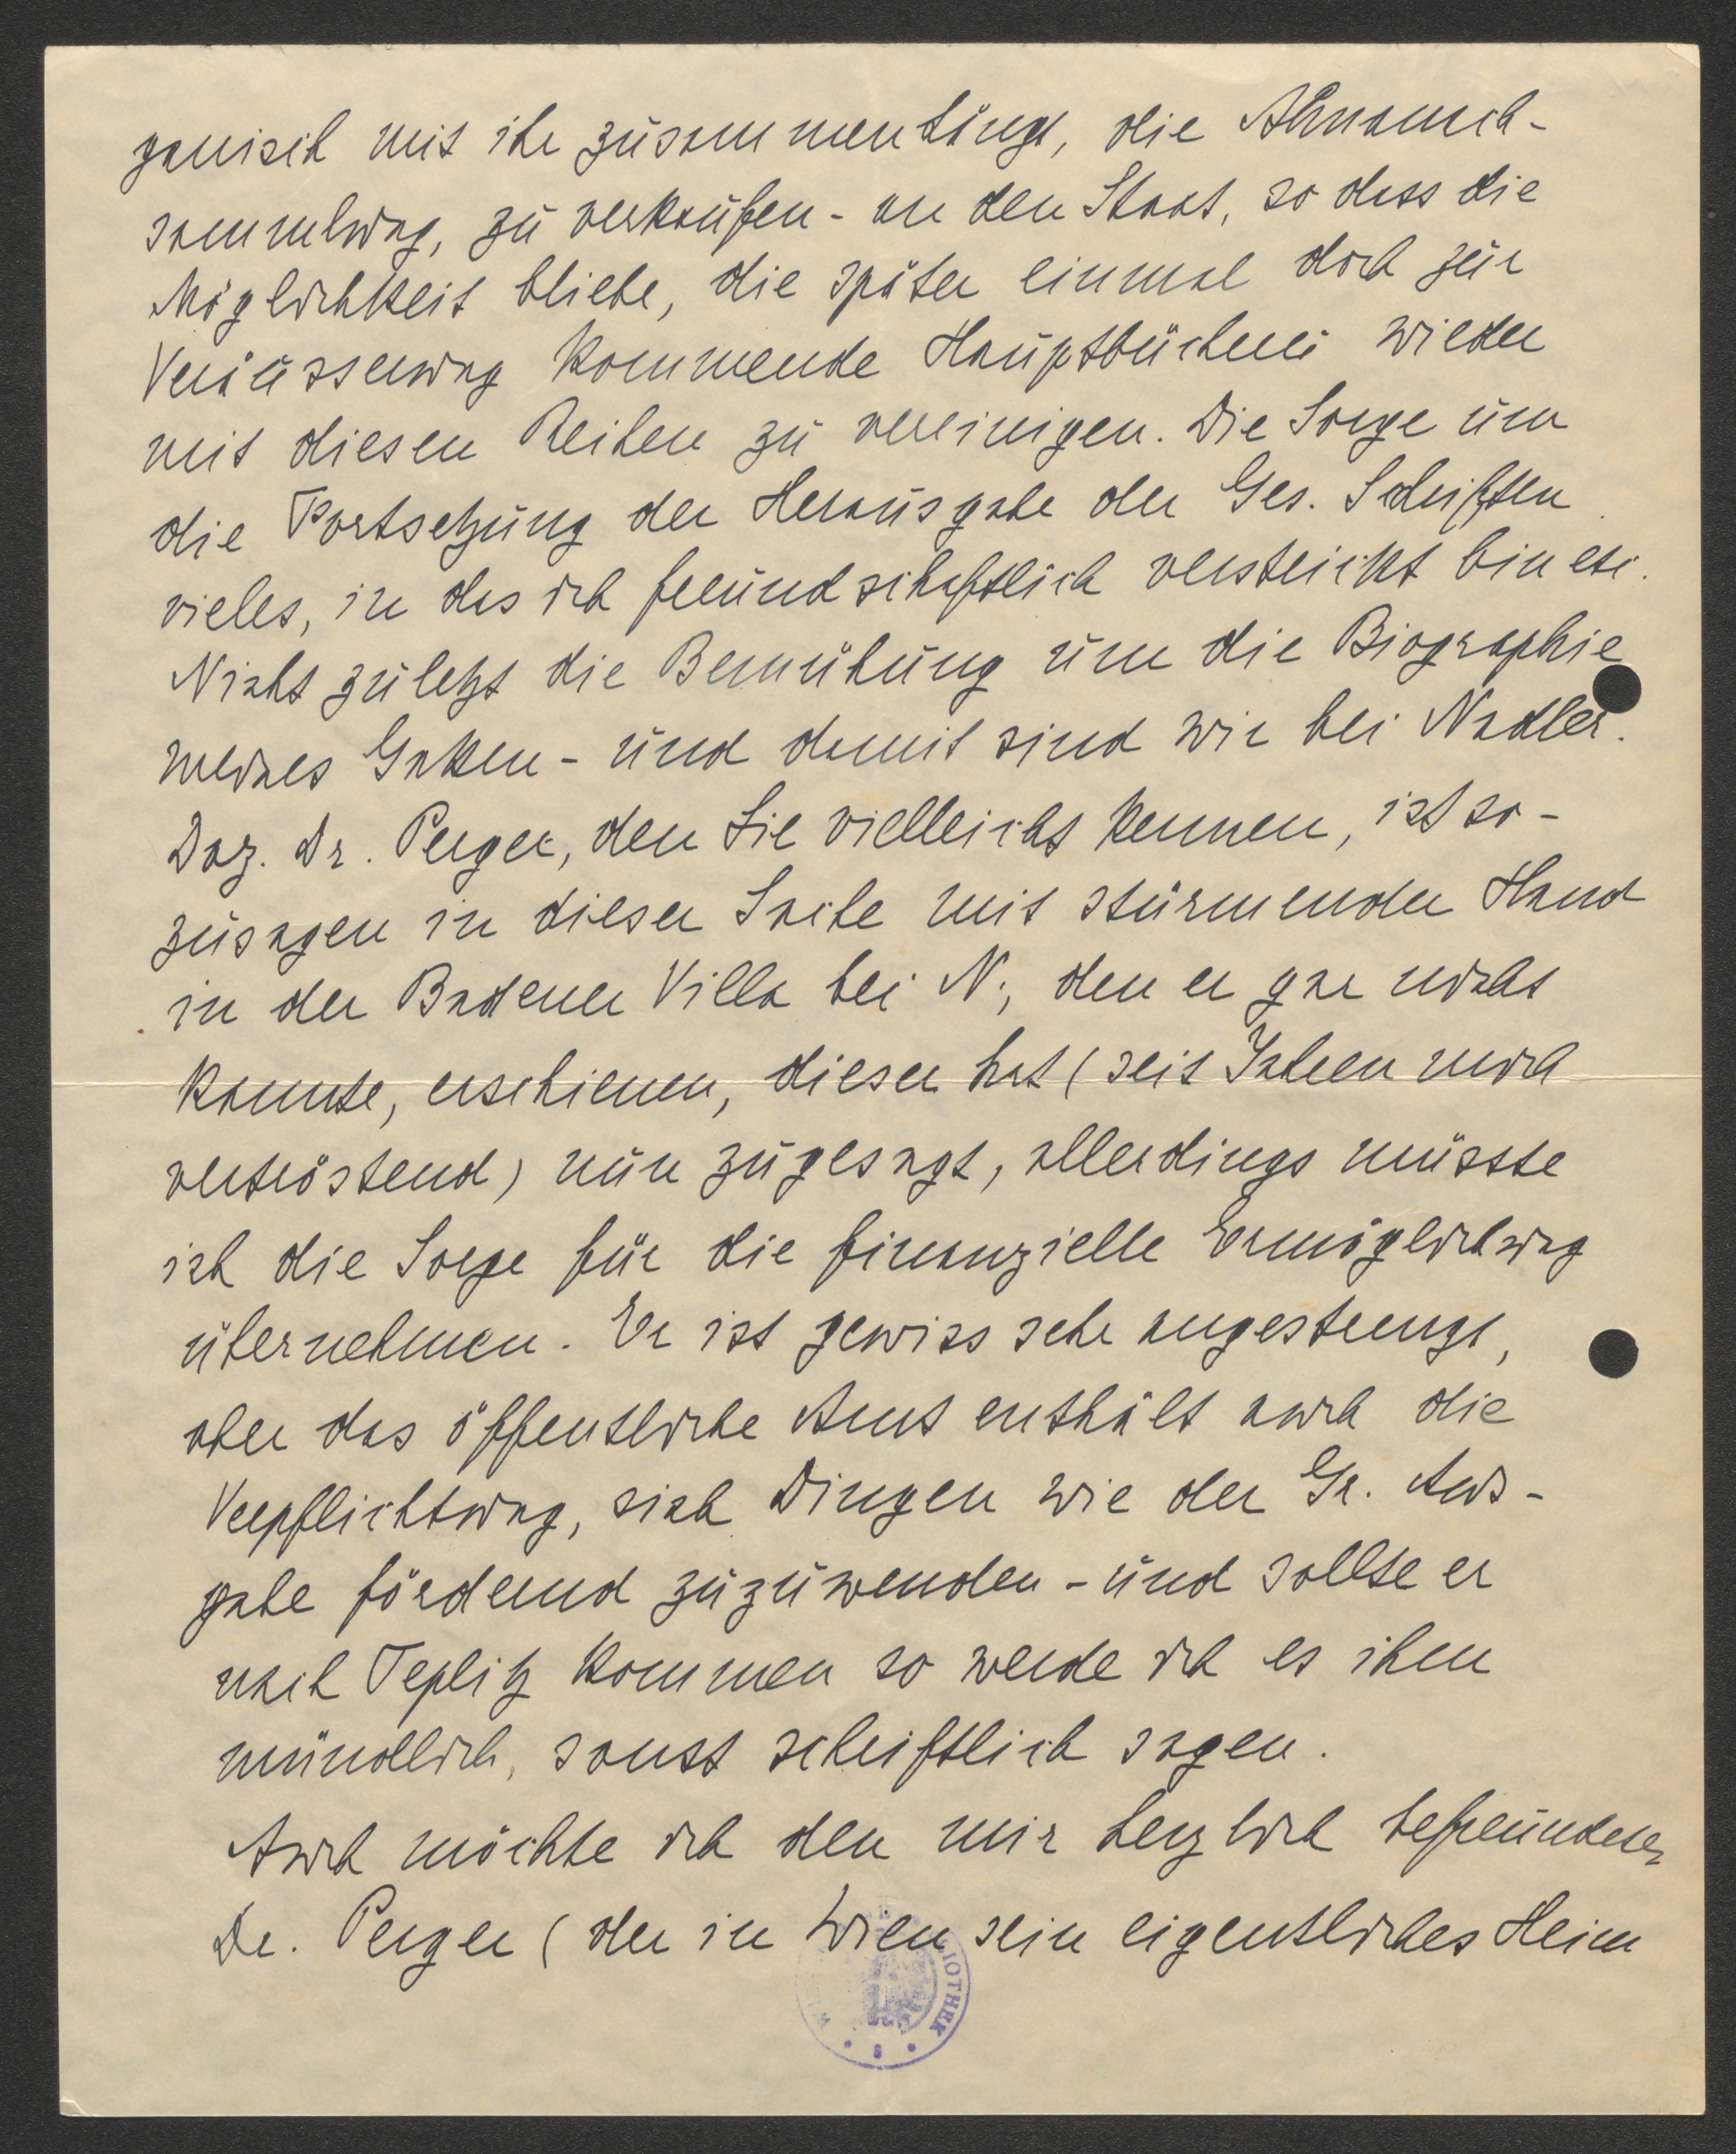 ganisch mit ihr zusammenhängt, die Almanach-
sammlung, zu verkaufen - an den Staat, so dass die
Möglichkeit bliebe, die später einmal doch zur
Veräusserung kommende Hauptbücherei wieder
mit diesen Reihen zu vereinigen. Die Sorge um
die Fortsetzung der Herausgabe der Ges. Schriften
vieles, in das ich freundschaftlich verstrickt bin etc.
Nicht zuletzt die Bemühung um die Biographie
meines Gatten - und damit sind wir bei Nadler.
Doz. Dr. Perger, den Sie vielleicht kennen, ist so-
zusagen in dieser Sache mit stürmender Hand
in der Badener Villa bei N., den er gar nicht
kannte, erschienen, dieser hat (seit Jahren mich
vertröstend) nun zugesagt, allerdings müsste
ich die Sorge für die finanzielle Ermöglichung
übernehmen. Er ist gewiss sehr angestrengt,
aber das öffentliche Amt enthält auch die
Verpflichtung, sich Dingen wie der Gr. Aus-
gabe fördernd zuzuwenden - und sollte er
nach Teplitz kommen so werde ich es ihm
mündlich, sonst schriftlich sagen.
Auch möchte ich den mir herzlich befreundeten
Dr. Perger (der in Wien sein eigentliches Heim
IOTHEK